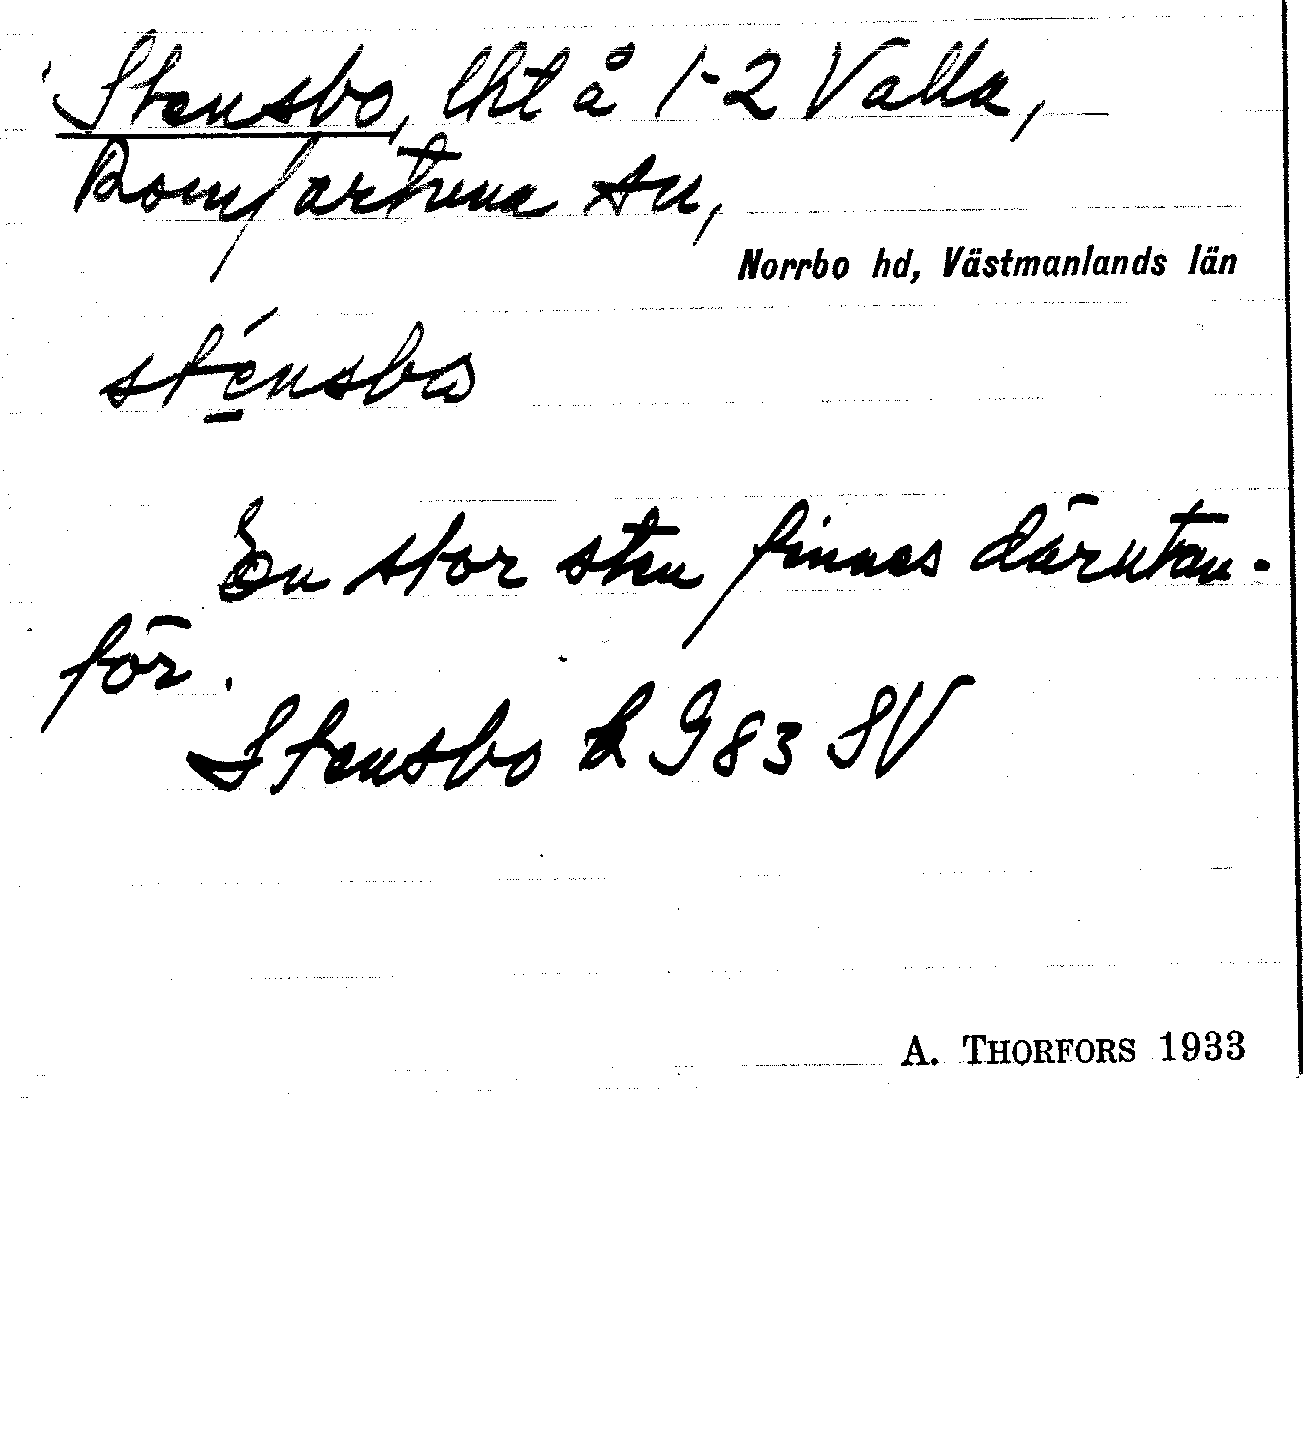 Stensbo, lht å 1-2 Valla,
Romfartuna sn,
Norrbo hd, Västmanlands län
sténsbo
En stor sten finnes därutan-
för.
Stensbo k G 83 SV
A. THORFORS 1933